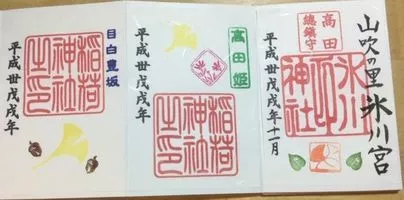 山吹の里 氷川宮
高田
總鎮守
氷川
神社
平成卅戊戌年十一月
高田姫
稲荷
神社
之印
平成卅戊戌年
目白豊坂
稲荷
神社
之印
平成卅戊戌年